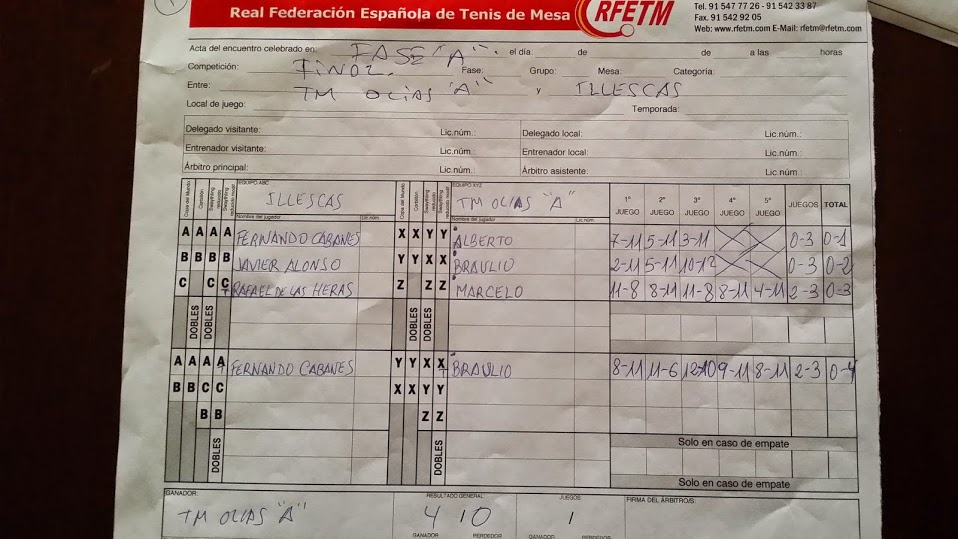 Real Federación Española de Tenis de Mesa RFETM
Tel. 91 547 77 26 - 91 542 33 87
Fax. 91 542 92 05
Web: www.rfetm.com E-Mail: rfetm@rfetm.com
Acta del encuentro celebrado en: FASE "A". el día: de de a las horas
Competición: Fase: Grupo: Mesa: Categoría:
Entre: TM OLIAS "A" y ILLESCAS
Local de juego: Temporada:
Delegado visitante: Lic.núm.: Delegado local: Lic.núm.:
Entrenador visitante: Lic.núm.: Entrenador local: Lic.núm.:
Árbitro principal: Lic.núm.: Árbitro asistente: Lic.núm.:
Copa del Mundo Corbillón Swaythling reducido Swaythling reducido modif. EQUIPO ABC ILLESCAS Copa del Mundo Corbillón Swaythling reducido Swaythling reducido modif. EQUIPO XYZ TM OLIAS "A" 1º JUEGO 2º JUEGO 3º JUEGO 4º JUEGO 5º JUEGO JUEGOS TOTAL
Nombre del jugador Lic.núm. Nombre del jugador Lic.núm.
A A A A FERNANDO CABANES X X Y Y ALBERTO 7-11 5-11 3-11 0-3 0-1
B B B B JAVIER ALONSO Y Y X X BRAULIO 2-11 5-11 10-12 0-3 0-2
C C C RAFAEL DE LAS HERAS Z Z Z MARCELO 11-8 8-11 11-8 8-11 4-11 2-3 0-3
DOBLES DOBLES DOBLES DOBLES
A A A A FERNANDO CABANES Y Y X X BRAULIO 8-11 11-6 12-10 9-11 8-11 2-3 0-4
B B C C X X Y Y
B B Z Z
Solo en caso de empate
DOBLES DOBLES
Solo en caso de empate
GANADOR: RESULTADO GENERAL JUEGOS FIRMA DEL ÁRBITRO/S:
TM OLIAS "A" 4 0
GANADOR PERDEDOR GANADOR PERDEDOR